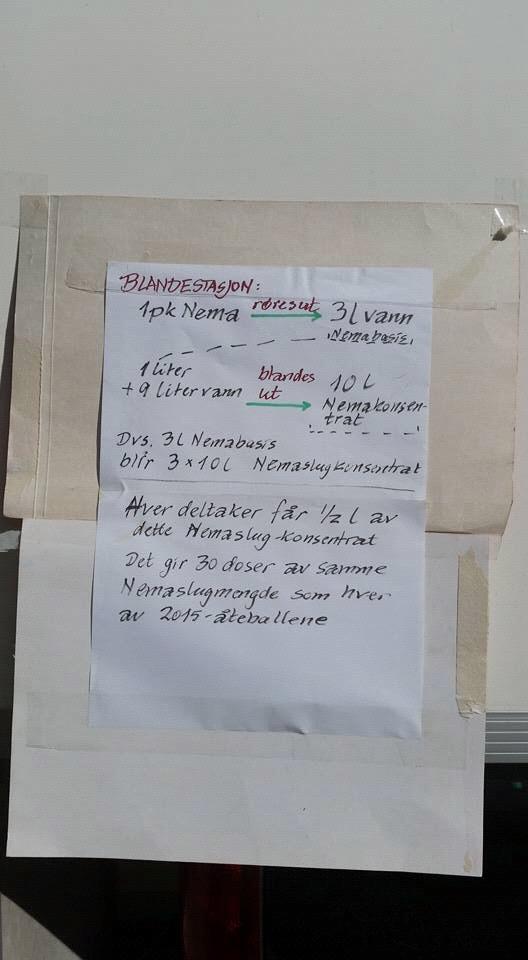 BLANDESTASJON:
1pk Nema røres ut 3 l vann
Nemabasis
1 liter
+ 9 liter vann blandes ut 10 l
Nemakonsen-
trat
Dvs. 3l Nemabasis
blir 3 x 10 l Nemaslugkonsentrat
Hver deltaker får 1/2 l av
dette Nemaslug-konsentrat
Det gir 30 doser av samme
Nemaslugmengde som hver
av 2015-åteballene